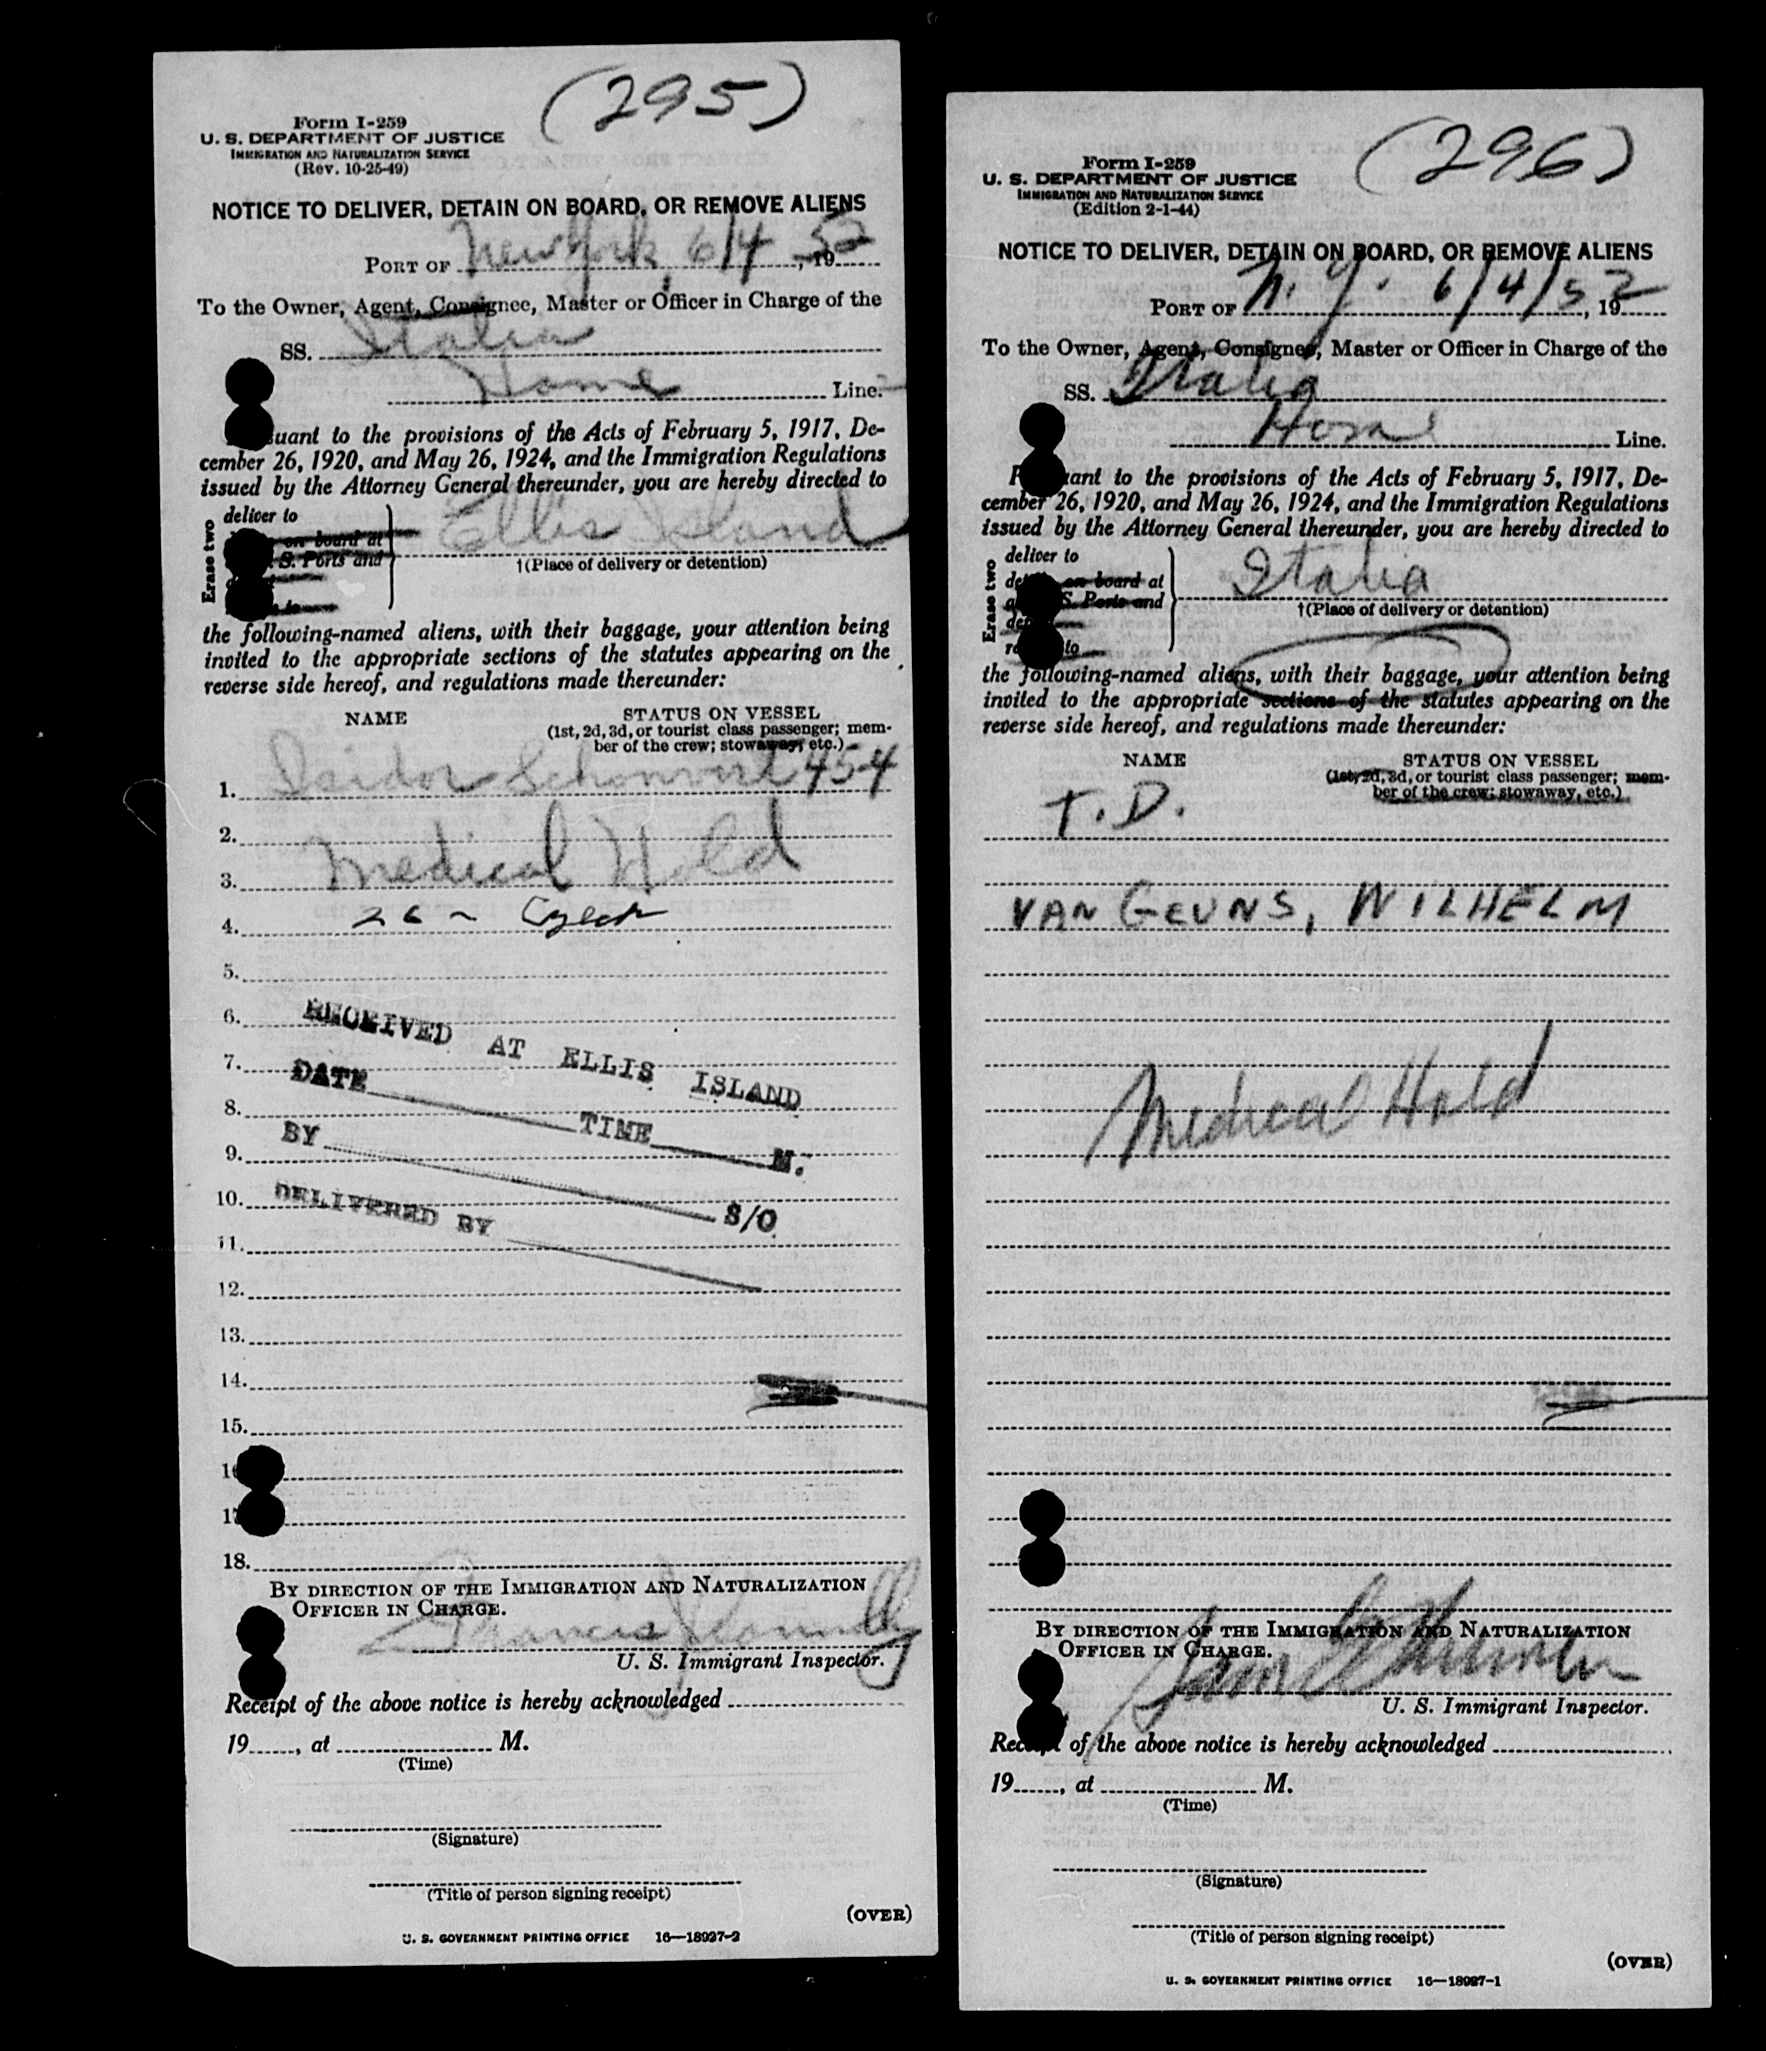 (295)
Form I-259
U. S. DEPARTMENT OF JUSTICE
IMMIGRATION AND NATURALIZATION SERVICE
(Rev. 10-25-49)
NOTICE TO DELIVER, DETAIN ON BOARD, OR REMOVE ALIENS
PORT OF New York, 6/4, 1952
To the Owner, Agent, Consignee, Master or Officer in Charge of the
SS. Italia
Home Line.
suant to the provisions of the Acts of February 5, 1917, De-
cember 26, 1920, and May 26, 1924, and the Immigration Regulations
issued by the Attorney General thereunder, you are hereby directed to
Erase two
deliver to
on board at
S. Ports and
to
Ellis Island
†(Place of delivery or detention)
the following-named aliens, with their baggage, your attention being
invited to the appropriate sections of the statutes appearing on the
reverse side hereof, and regulations made thereunder:
NAME
STATUS ON VESSEL
(1st, 2d, 3d, or tourist class passenger; mem-
ber of the crew; stowaway, etc.)
1. Isidor 454
2.
3. Medical Hold
4. 26 Czech
5.
6.
7.
8.
9.
10.
11.
12.
13.
14.
15.
16
17
18.
RECEIVED AT ELLIS ISLAND
DATE TIME M.
BY S/O
DELIVERED BY
BY DIRECTION OF THE IMMIGRATION AND NATURALIZATION
OFFICER IN CHARGE.
Francis
U. S. Immigrant Inspector.
Receipt of the above notice is hereby acknowledged
19, at M.
(Time)
(Signature)
(Title of person signing receipt)
(OVER)
U. S. GOVERNMENT PRINTING OFFICE 16—18927-2
(296)
Form I-259
U. S. DEPARTMENT OF JUSTICE
IMMIGRATION AND NATURALIZATION SERVICE
(Edition 2-1-44)
NOTICE TO DELIVER, DETAIN ON BOARD, OR REMOVE ALIENS
PORT OF N. Y. 6/4/52, 19
To the Owner, Agent, Consignee, Master or Officer in Charge of the
SS. Italia
Home Line.
P ant to the provisions of the Acts of February 5, 1917, De-
cember 26, 1920, and May 26, 1924, and the Immigration Regulations
issued by the Attorney General thereunder, you are hereby directed to
Erase two
deliver to
det on board at
a S. Ports and
de
re to
Italia
†(Place of delivery or detention)
the following-named aliens, with their baggage, your attention being
invited to the appropriate sections of the statutes appearing on the
reverse side hereof, and regulations made thereunder:
NAME
STATUS ON VESSEL
(1st, 2d, 3d, or tourist class passenger; mem-
ber of the crew; stowaway, etc.)
T. D.
VAN GEUNS, WILHELM
Medical Hold
BY DIRECTION OF THE IMMIGRATION AND NATURALIZATION
OFFICER IN CHARGE.
U. S. Immigrant Inspector.
Receipt of the above notice is hereby acknowledged
19, at M.
(Time)
(Signature)
(Title of person signing receipt)
(OVER)
U. S. GOVERNMENT PRINTING OFFICE 16—18927-1